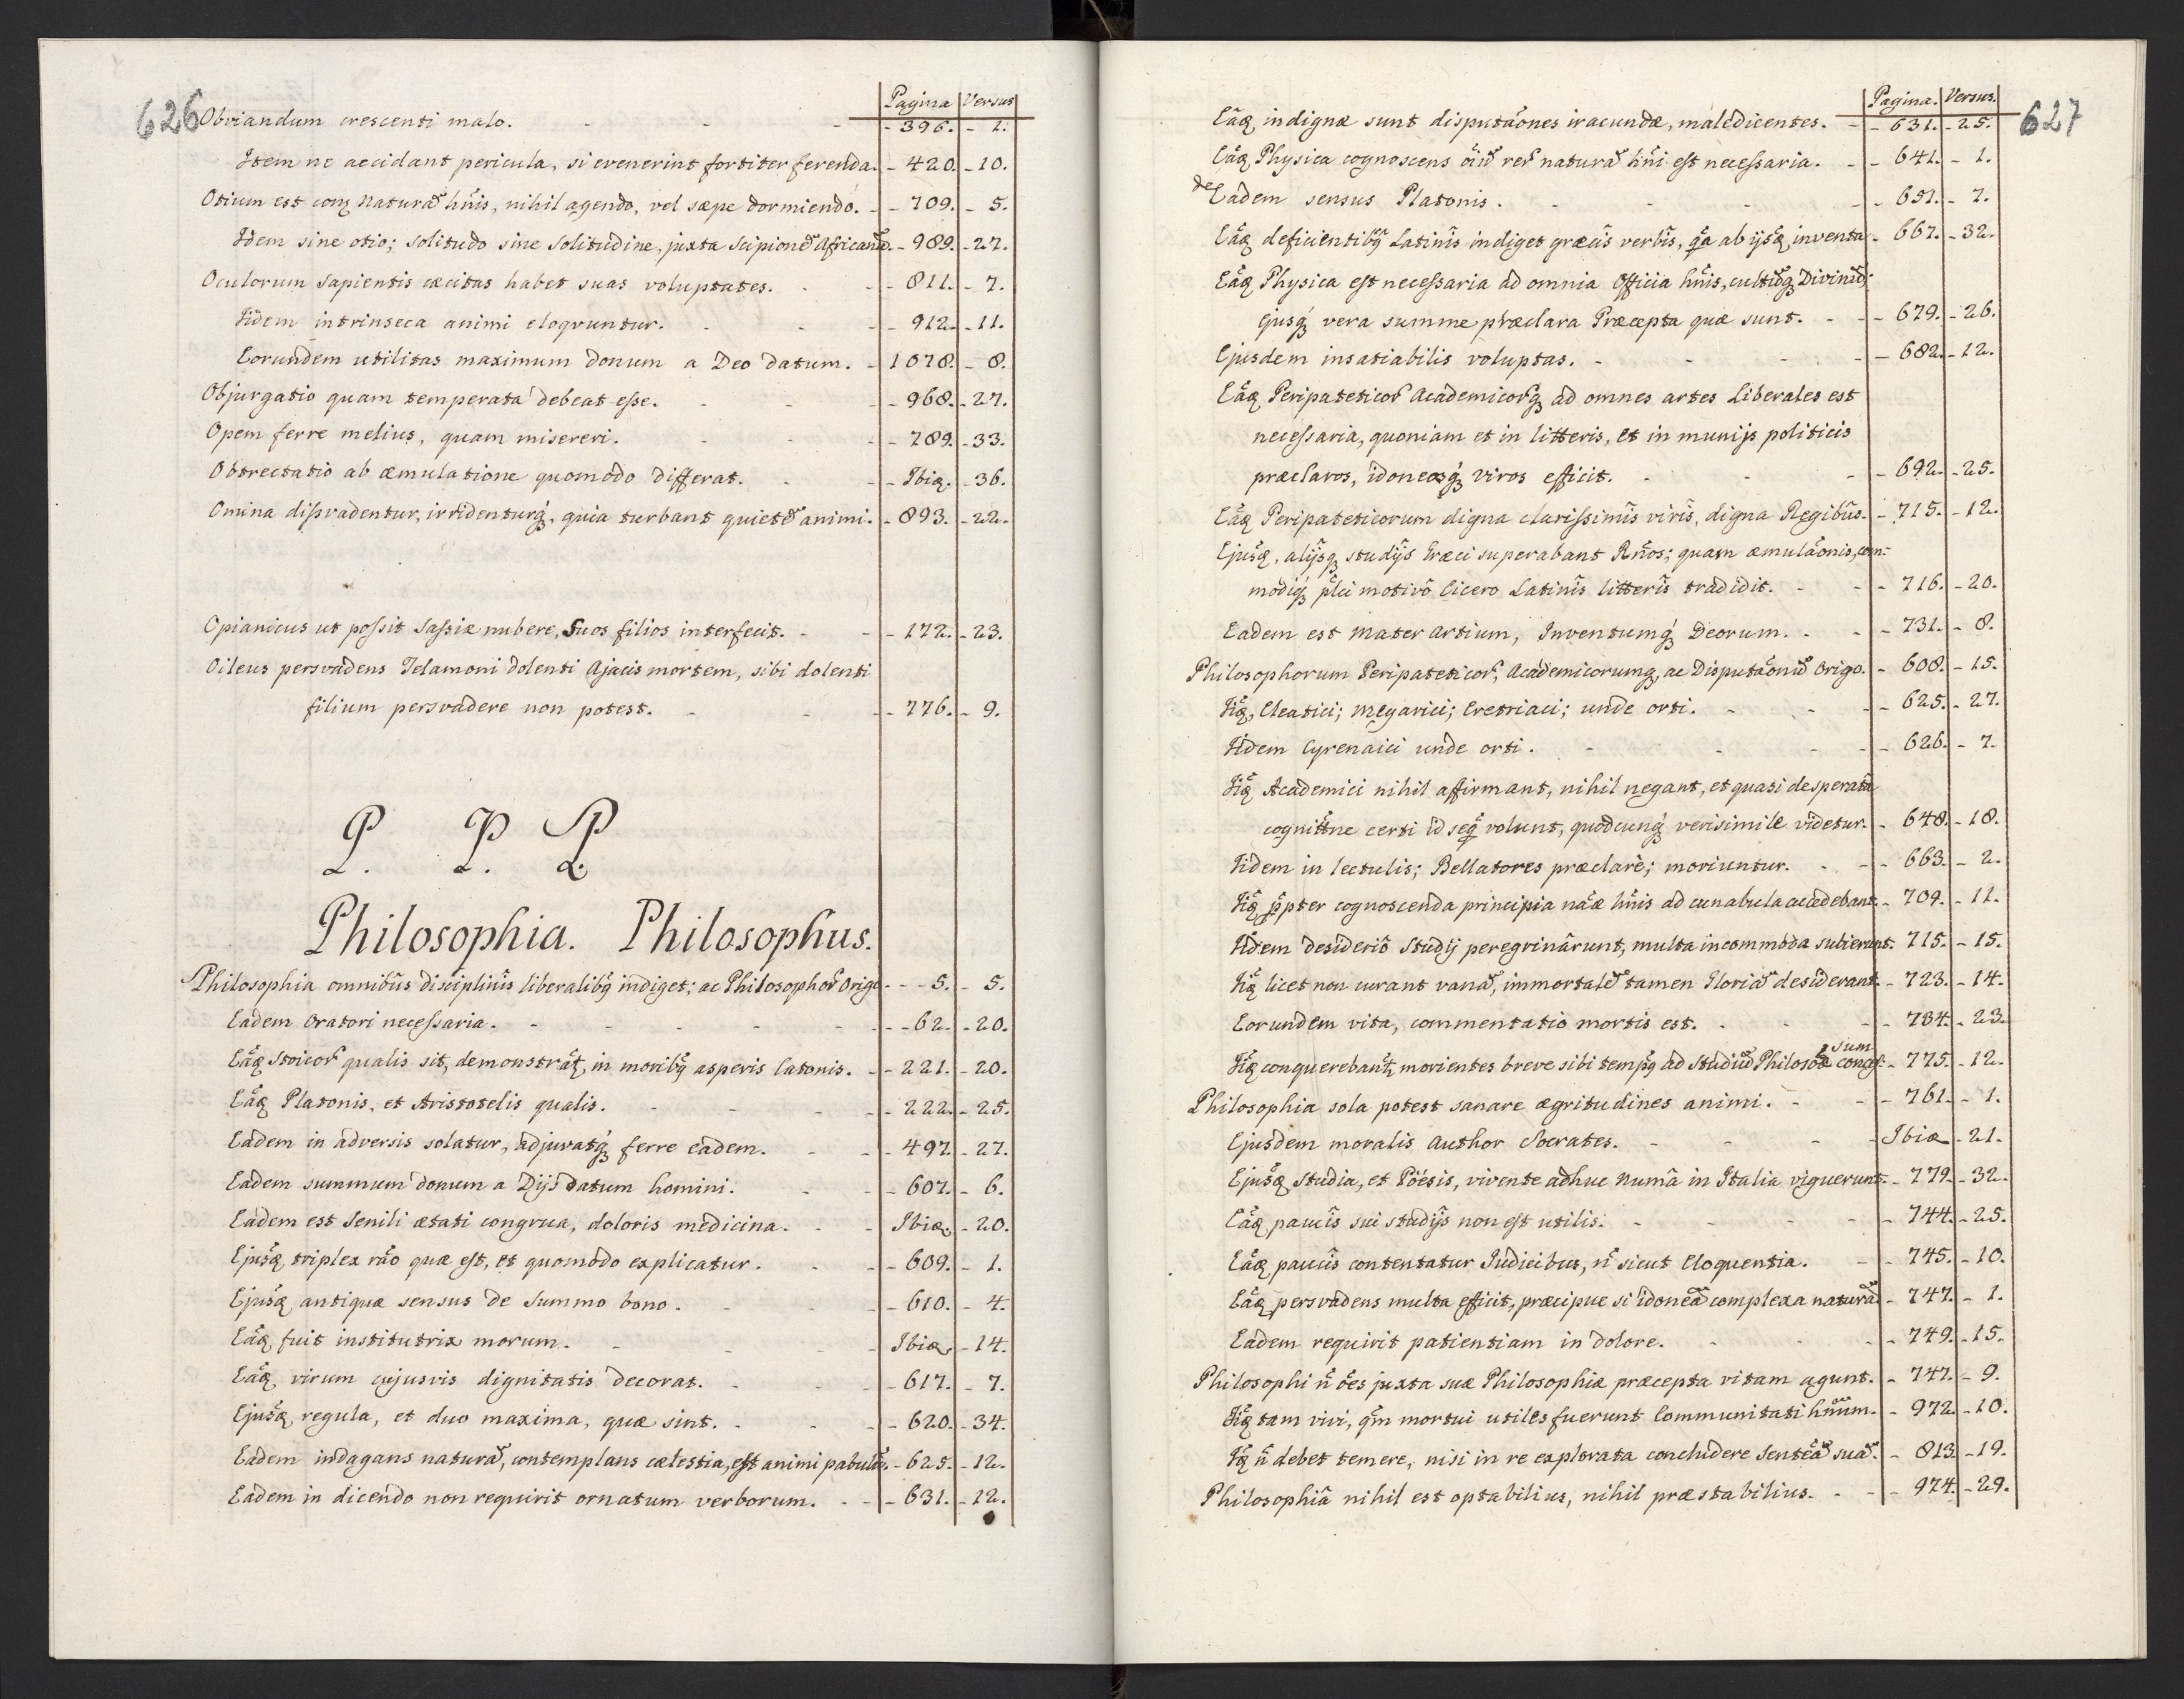 626
Pagina Versus
Obviandum crescenti malo. - - - - 396. - 1.
Item ne accidant pericula, si evenerint fortiter ferenda. - 420. - 10.
Otium est contra Naturã hñis, nihil agendo, vel sæpe dormiendo. - - 709. - 5.
Idem sine otio; solitudo sine solitudine, juxta Scipionẽ Africanũ. - 989. - 27.
Oculorum sapientis cæcitas habet suas voluptates. - - 811. - 7.
Iidem intrinseca animi eloqvuntur. - - - 912. - 11.
Eorundem utilitas maximum donum a Deo datum. - 1078. - 8.
Objurgatio quam temperata debeat esse. - - - 968. - 27.
Opem ferre melius, quam misereri. - - - 789. - 33.
Obtrectatio ab æmulatione quomodo differat. - - Ibiq. - 36.
Omina dissvadentur, irridenturq́, quia turbant quietẽ animi. - 893. - 22.
Opianicus ut possit Sassiæ nubere, suos filios interfecit. - - 172. - 23.
Oileus persvadens Telamoni dolenti Ajacis mortem, sibi dolenti
filium persvadere non potest. - - - 776. - 9.
P. P. P.
Philosophia. Philosophus.
Philosophia omnibus disciplinis liberalibq indiget; ac Philosophoř Origo - - 5. - 5.
Eadem Oratori necessaria. - - - - - 62. - 20.
Eãq Stoicoř qualis sit, demonstrãt, in moribq asperis Catonis. - - 221. - 20.
Eãq Platonis, et Aristotelis qualis. - - - 222. - 25.
Eadem in adversis solatur, adjuvatq́ ferre eadem. - - 497. - 27.
Eadem summum donum a Dijs datum homini. - - 607. - 6.
Eadem est senili ætati congrua, doloris medicina. - - Ibiq. - 20.
Ejusq, triplex rão quæ est, et quomodo explicatur. - - 609. - 1.
Ejusq, antiquæ sensus de summo bono. - - - 610. - 4.
Eãq fuit institutrix morum. - - - Ibiq. - 14.
Eãq virum cujusvis dignitatis decorat. - - - 617. - 7.
Ejusq, regula, et duo maxima, quæ sint. - - - 620. - 34.
Eadem indagans naturã, contemplans cælestia, est animi pabulũ. - 625. - 12.
Eadem in dicendo non requirit ornatum verborum. - - 631. - 12.
627
Pagina. Versus.
Eãq indignæ sunt disputãones iracundæ, maledicentes. - - 631. - 25.
Eãq Physica cognoscens õiũ reř naturã hñi est necessaria. - - 641. - 1.
de Eadem sensus Platonis. - - - - 651. - 7.
Eãq deficientibq Latinis indiget græcis verbis, qã ab ijsq, inventa - 667. - 32.
Eãq Physica est necessaria ad omnia Officia hñis, cultũq Divinũ;
Ejusq́ vera summe præclara Præcepta quæ sunt. - - 679. - 26.
Ejusdem insatiabilis voluptas. - - - - 682. - 12.
Eãq Peripateticoř Academicořq ad omnes artes Liberales est
necessaria, quoniam et in litteris, et in munijs politicis
præclaros, idoneosq́ viros efficit. - - - 692. - 25.
Eãq Peripateticorum digna clarissimis viris, digna Regibus. - 715. - 12.
Ejusq, alijsq studijs Græci superabant Rños; quam æmulãonis, com-
modiq́ pľci motivo Cicero Latinis litteris tradidit. - - 716. - 20.
Eadem est Mater Artium, Inventumq́ Deorum. - - 731. - 8.
Philosophorum Peripateticoř, Academicorumq, ac Disputãonũ Origo. - 608. - 15.
Iiq, Eleatici; Megarici; Eretriaci; unde orti. - - 625. - 27.
Iidem Cyrenaici unde orti. - - - - 626. - 7.
Iiq Academici nihil affirmant, nihil negant, et quasi desperata
cognitne certi id seq̃ volunt, quodcunq́ verisimile videtur. - 648. - 18.
Iidem in lectulis; Bellatores præclarè; moriuntur. - - 663. - 2.
Iiq p̃pter cognoscenda principia nãæ hñis ad cunabula accedebant. - 709. - 11.
Iidem desiderio studij peregrinârunt, multa incommoda subierunt. 715. - 15.
Iiq licet non curant vanã, immortalẽ tamen Gloriã desiderant. - 723. - 14.
Eorundem vita, commentatio mortis est. - - - 734. - 23.
Iiq conquerebant, morientes breve sibi tempq ad studiũ Philosoæ conces- - 775. - 12.
sum
Philosophia sola potest sanare ægritudines animi. - - - 761. - 1.
Ejusdem moralis Author Socrates. - - - Ibiq - 21.
Ejusq, studia, et Pöésis, vivente adhuc Numâ in Italia viguerunt. - 779. - 32.
Eãq paucis sui studijs non est utilis. - - - 744. - 25.
Eãq, paucis contentatur Judicibus, ñ sicut Eloquentia. - - 745. - 10.
Eãq, persvadens multa efficit, præcipue si idoneã complexa naturã - 747. - 1.
Eadem requirit patientiam in dolore. - - - 749. - 15.
Philosophi ñ ões juxta suæ Philosophiæ præcepta vitam agunt. - 747. - 9.
Iiq tam vivi, qm̃ mortui utiles fuerunt Communitati hñum. - 972. - 10.
Iiq ñ debet temere, nisi in re explorata concludere sentẽã suã. - 813. - 19.
Philosophiâ nihil est optabilius, nihil præstabilius. - - - 974. - 29.